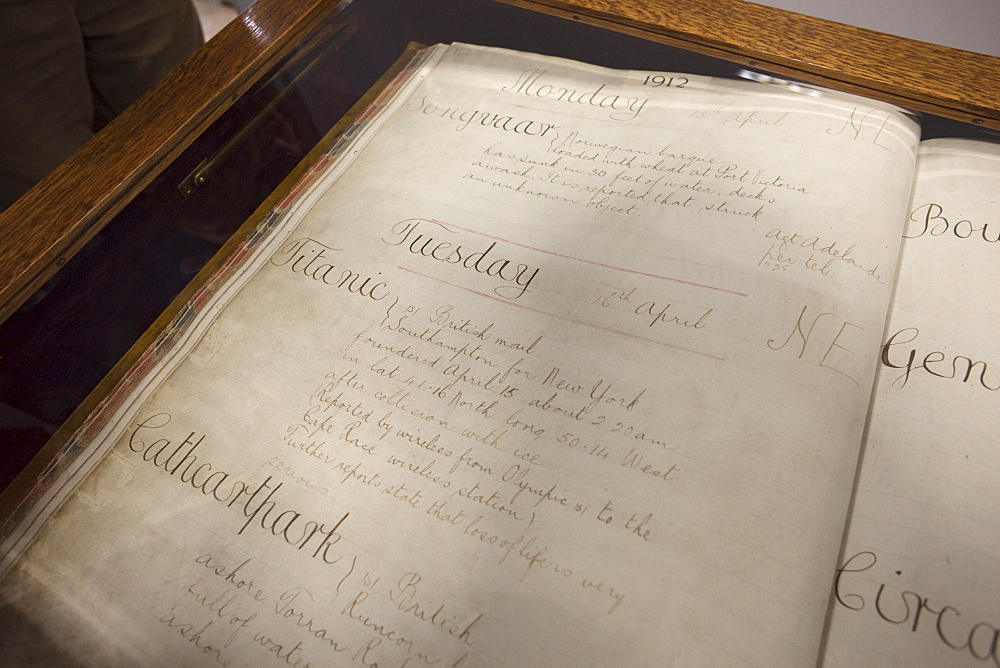 1912
Monday 15th April NE
Songvaar } Norwegian barque
loaded with wheat at Port Victoria
has sunk in 30 feet of water, decks
awash. It is reported that struck
an unknown object.
Agt Adelaide
per tel.
Tuesday 16th April NE
Titanic } (s) British mail
Southampton for New York
foundered April 15 about 2.20 am
in lat 41.16 North long 50.14 West
after collision with ice
(Reported by wireless from Olympic (s) to the
Cape Race wireless station)
Further reports state that loss of life is very
serious.
Cathcartpark } (s) British
Runcorn
ashore Torran
full of water
ashore.
Bou
Gen
Circa